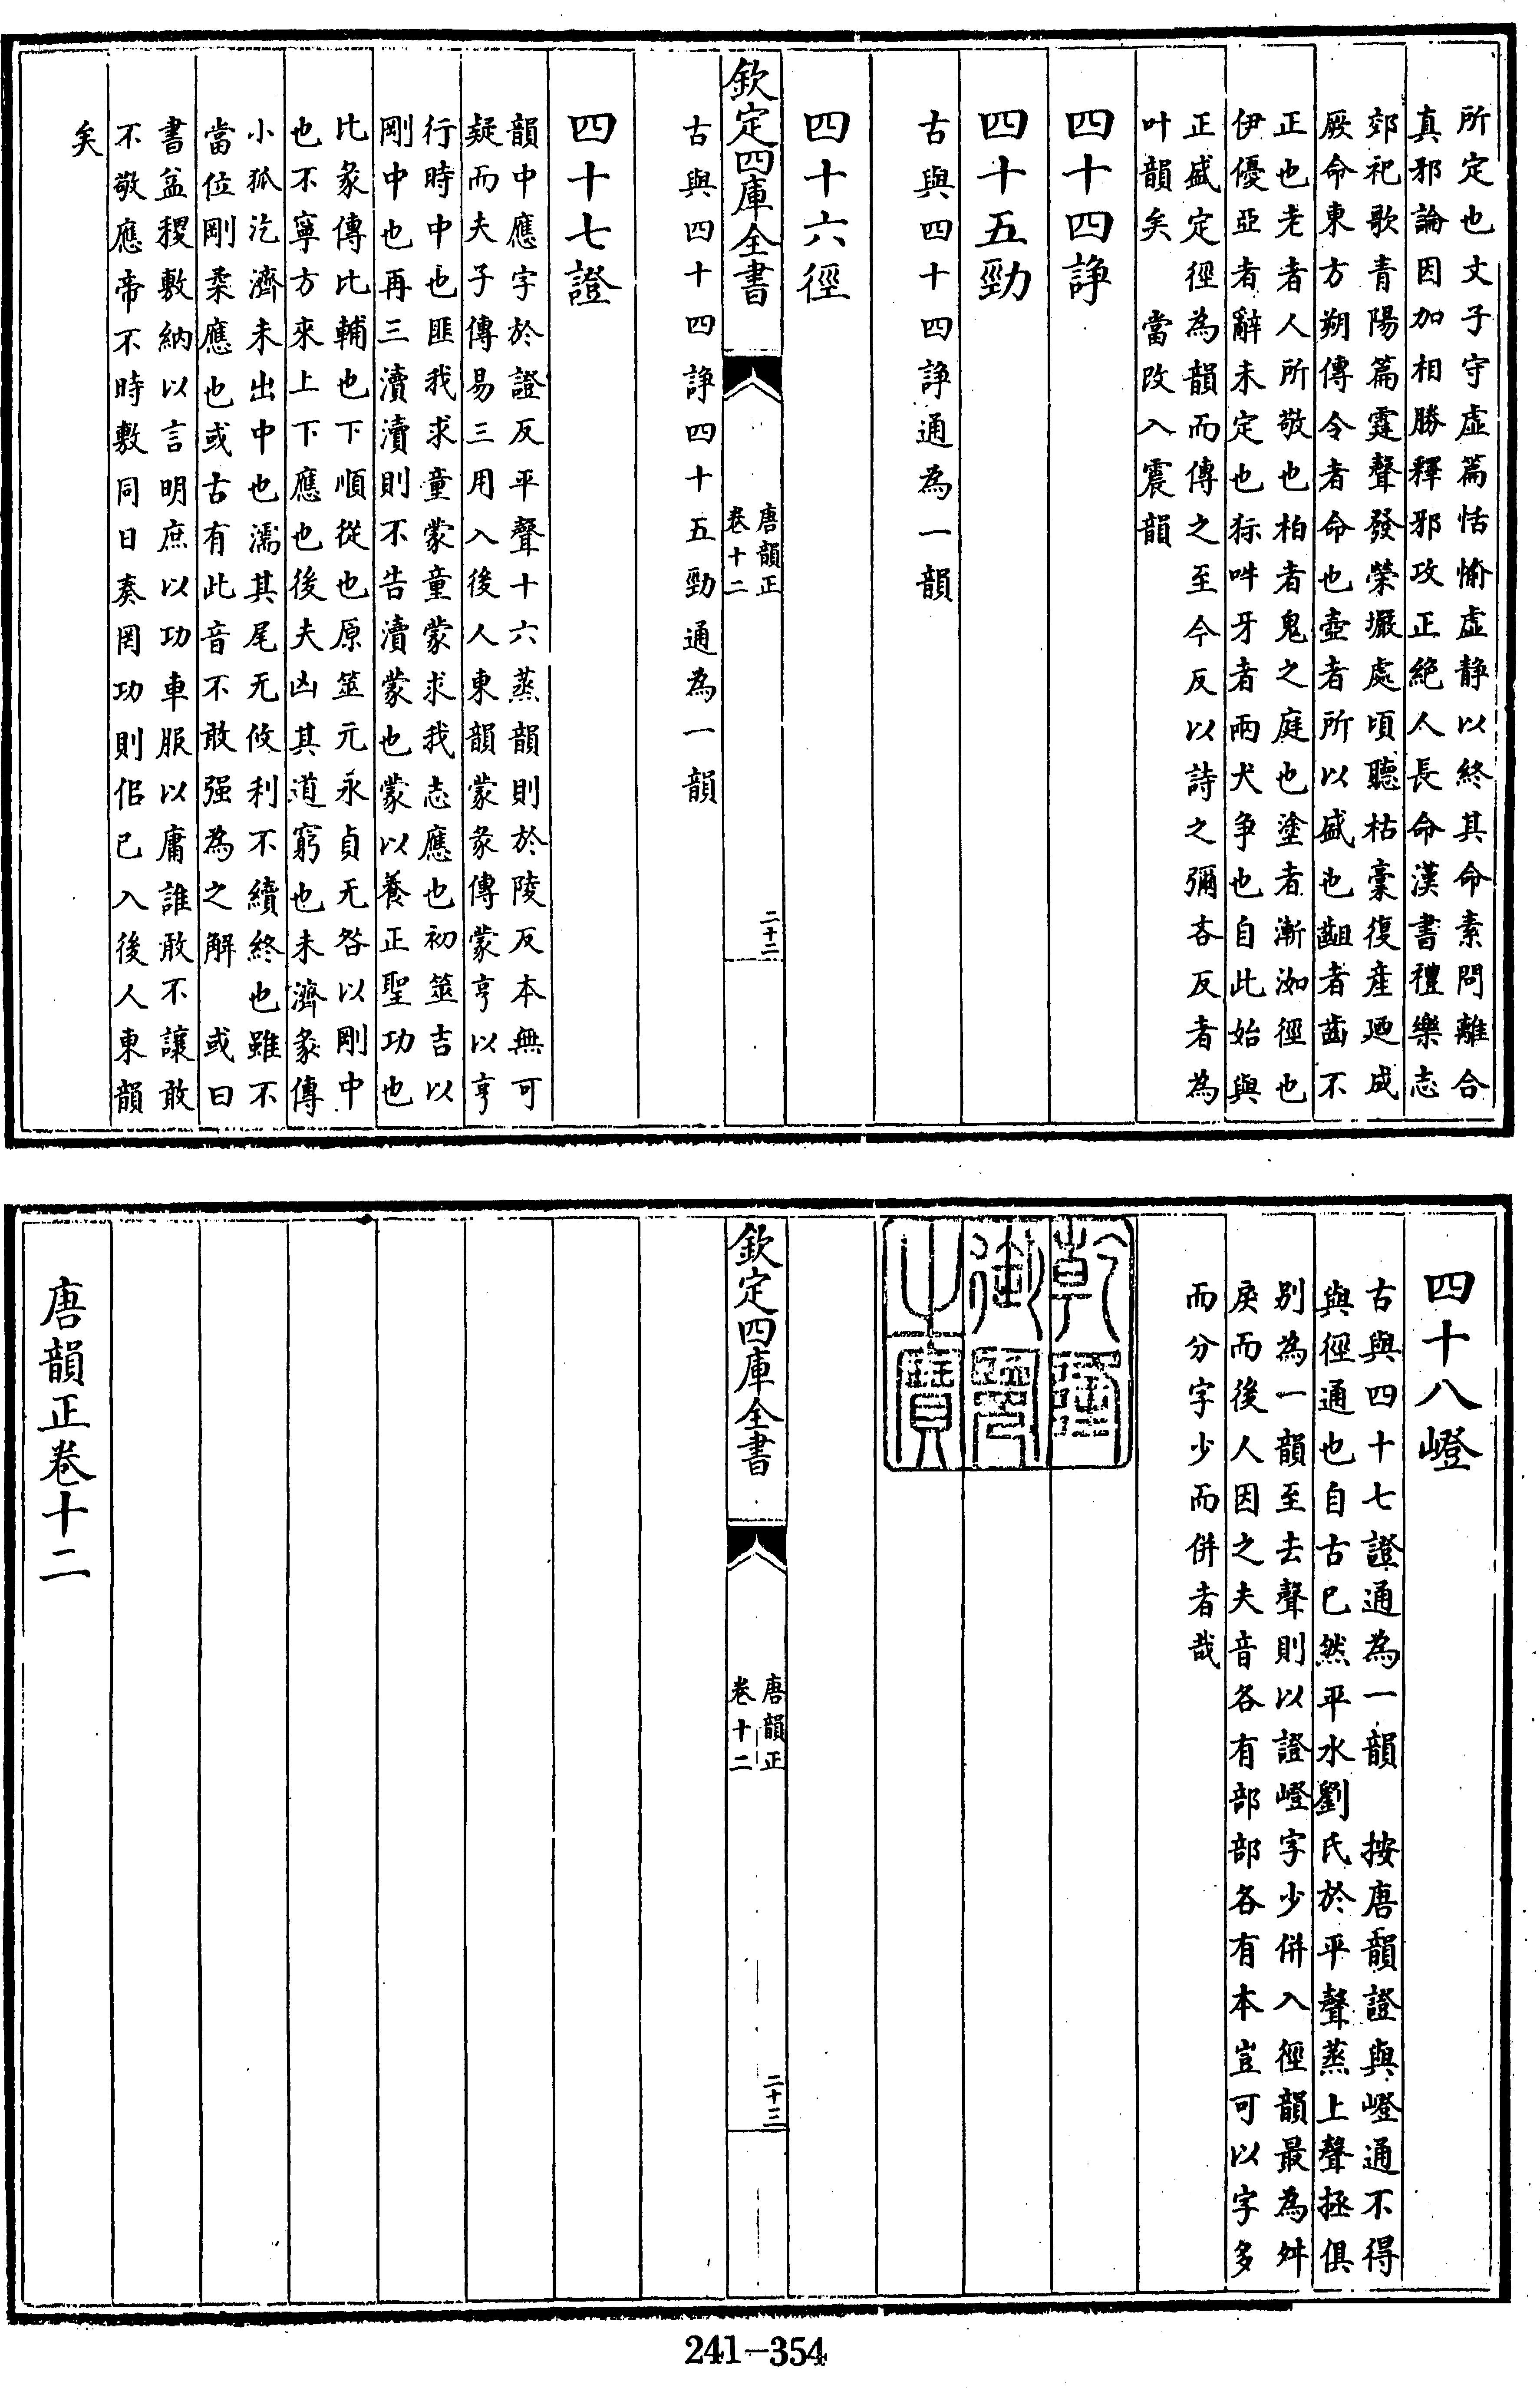 所定也文子守虛篇恬愉虛静以終其命素問離合
真邪論因加相勝釋邪攻正絶人長命漢書禮樂志
郊祀歌青陽篇霆聲發榮壧處頃聽枯槀復産廼成
厥命東方朔傳令者命也壺者所以盛也齟者齒不
正也老者人所敬也柏者鬼之庭也塗者漸洳徑也
伊優亞者辭未定也狋吽牙者兩犬争也自此始與
正盛定徑為韻而傳之至今反以詩之彌吝反者為
叶韻矣 當改入震韻
四十四諍
四十五勁
古與四十四諍通為一韻
四十六徑
欽定四庫全書
唐韻正
卷十二
二十二
古與四十四諍四十五勁通為一韻
四十七證
韻中應字於證反平聲十六蒸韻則於陵反本無可
疑而夫子傳易三用入後人東韻蒙彖傳蒙亨以亨
行時中也匪我求童蒙童蒙求我志應也初筮吉以
剛中也再三瀆瀆則不告瀆蒙也蒙以養正聖功也
比彖傳比輔也下順從也原筮元永貞无咎以剛中
也不寧方來上下應也後夫凶其道窮也未濟彖傳
小狐汔濟未出中也濡其尾无攸利不續終也雖不
當位剛柔應也或古有此音不敢强為之解 或曰
書益稷敷納以言明庶以功車服以庸誰敢不讓敢
不敬應帝不時敷同日奏罔功則佀已入後人東韻
矣
四十八嶝
古與四十七證通為一韻 按唐韻證與嶝通不得
與徑通也自古已然平水劉氏於平聲蒸上聲拯俱
別為一韻至去聲則以證嶝字少併入徑韻最為舛
戾而後人因之夫音各有部部各有本豈可以字多
而分字少而併者哉
乾隆
御覽
之寶
欽定四庫全書
唐韻正
卷十二
二十三
唐韻正卷十二
241-354